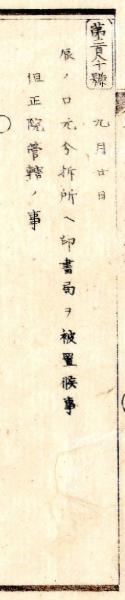 第二百八十號
九月廿日
辰ノ口元分析所ヘ印書局ヲ被置候事
但正院管轄ノ事